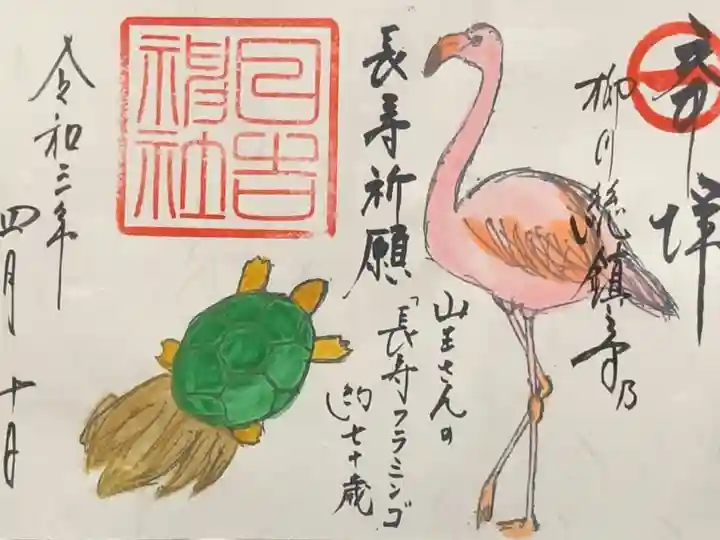 奉拝
柳川総鎮守乃
山王さんの
「長寿フラミンゴ」
約七十歳
長寿祈願
日吉神社
令和三年
四月十日